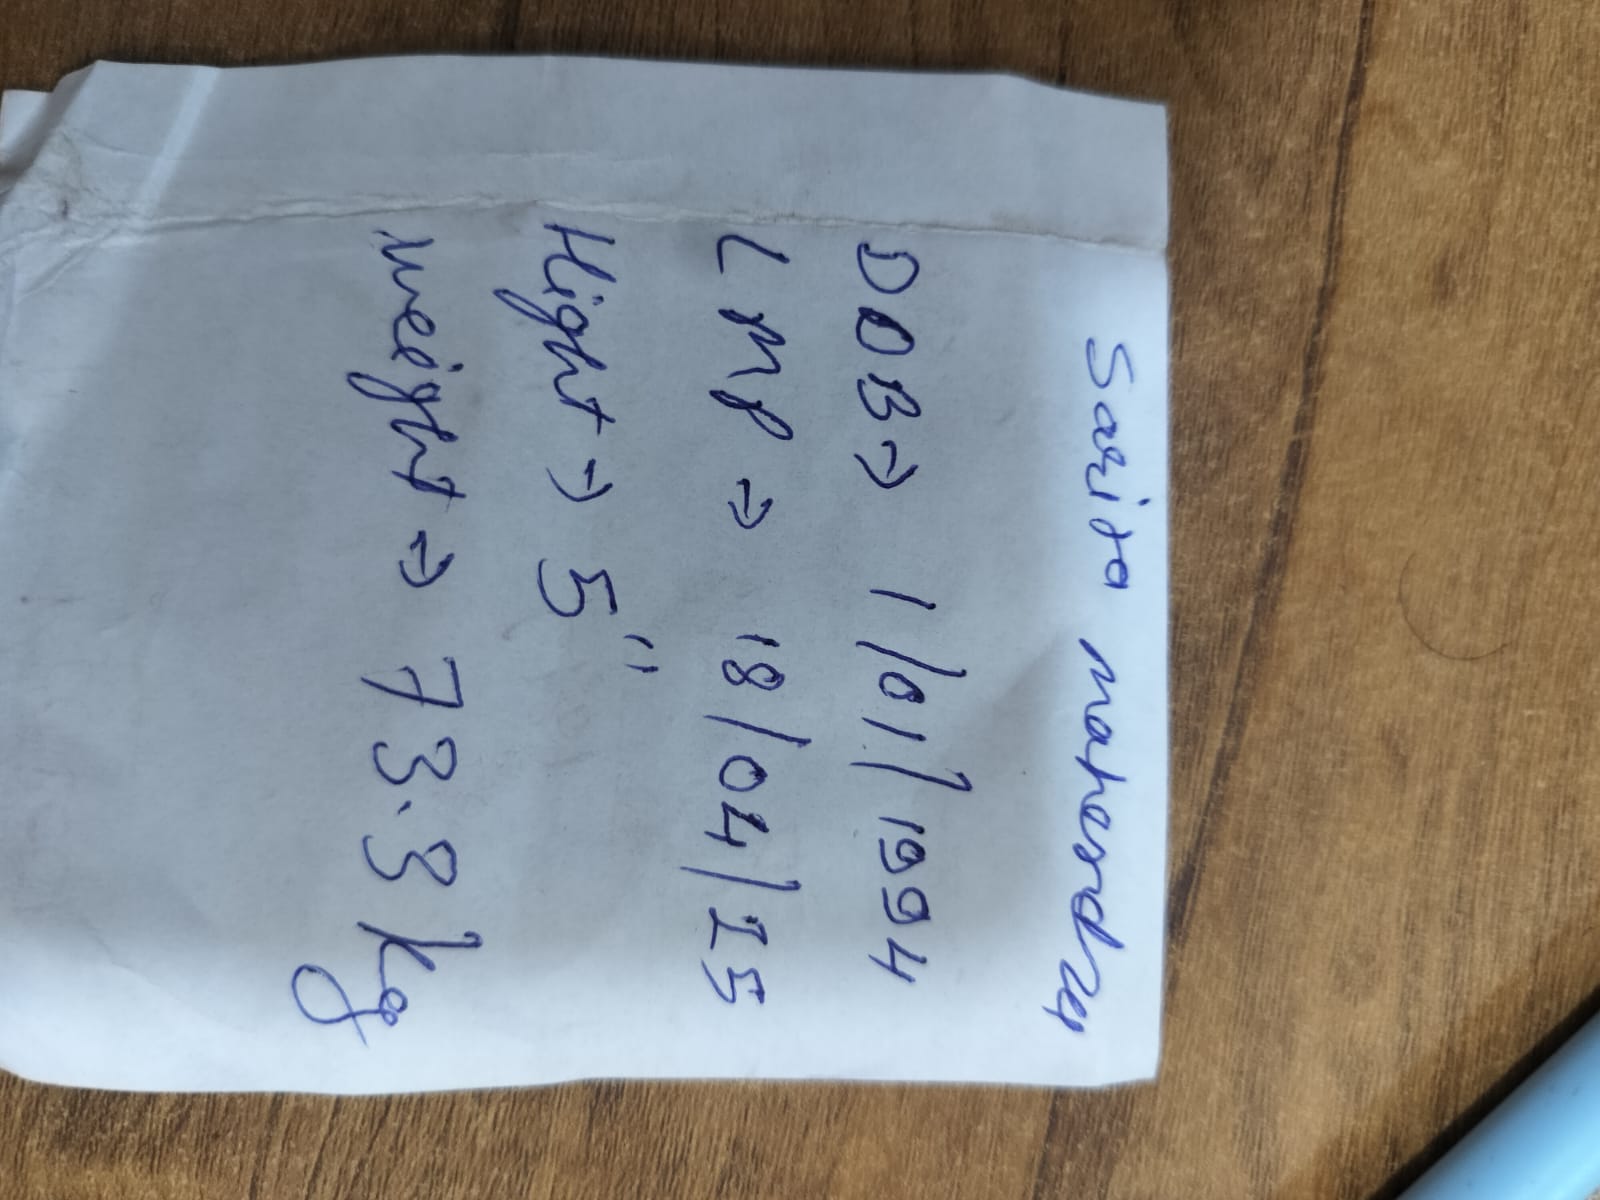 Sarita mahardzy
DOB → 1/01/1994
LMP → 18/04/25
Hight → 5"
weight → 73.3 kg